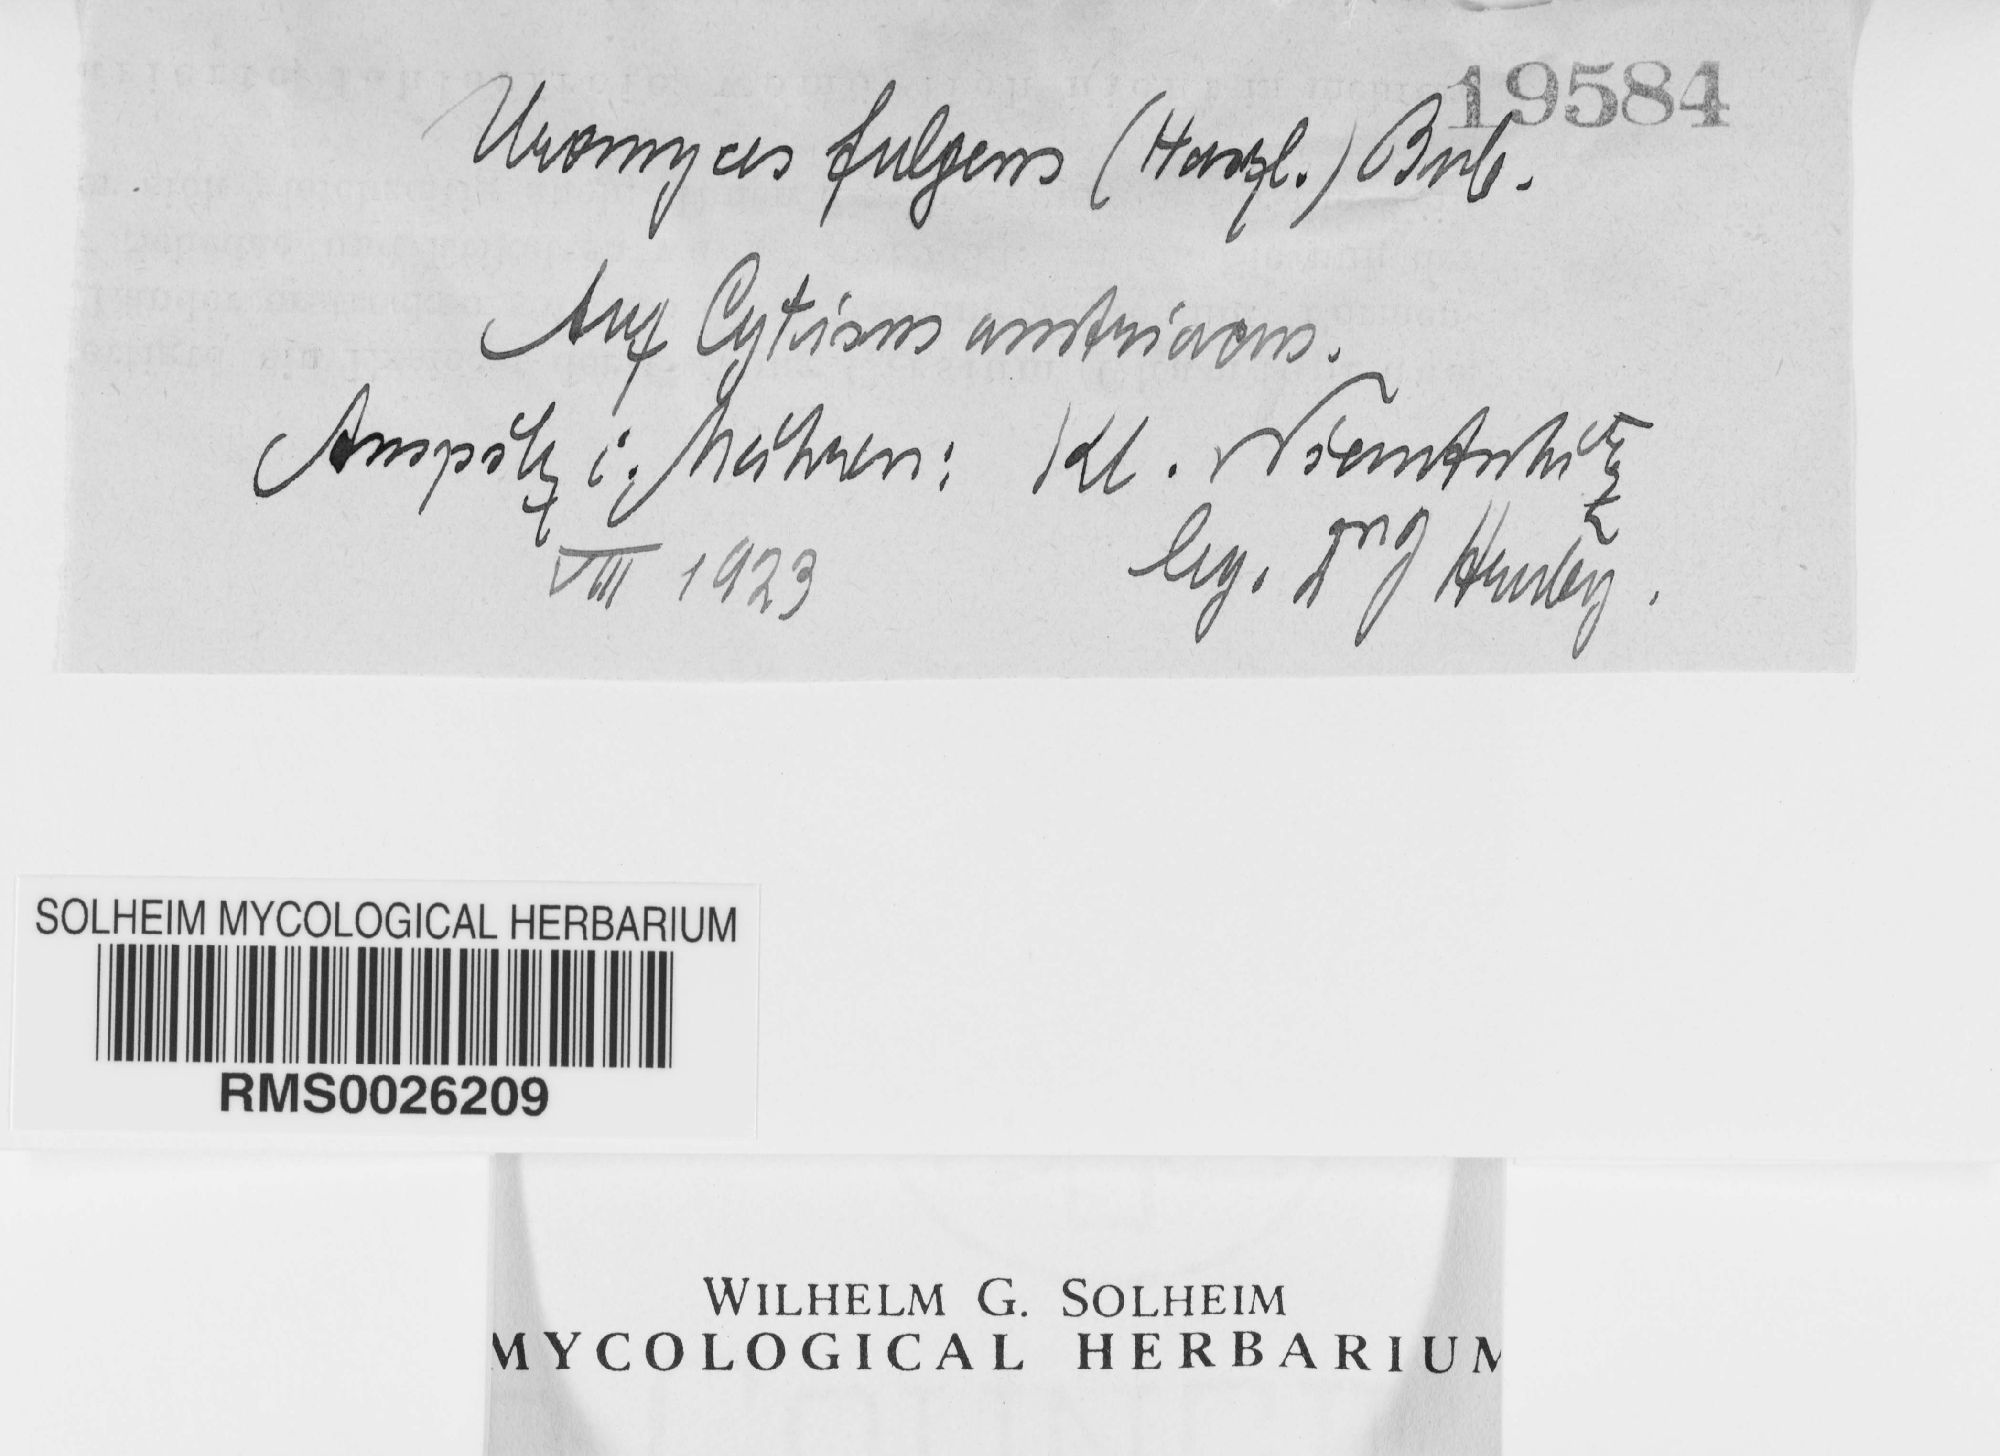 19584
Uromyces fulgens (Hazsl.) Bub.
Auf Cytisus austriacus.
Auspitz i. Mähren: Kl. Niemtschitz
VIII 1923 leg. Hruby.
SOLHEIM MYCOLOGICAL HERBARIUM
RMS0026209
WILHELM G. SOLHEIM
MYCOLOGICAL HERBARIUM